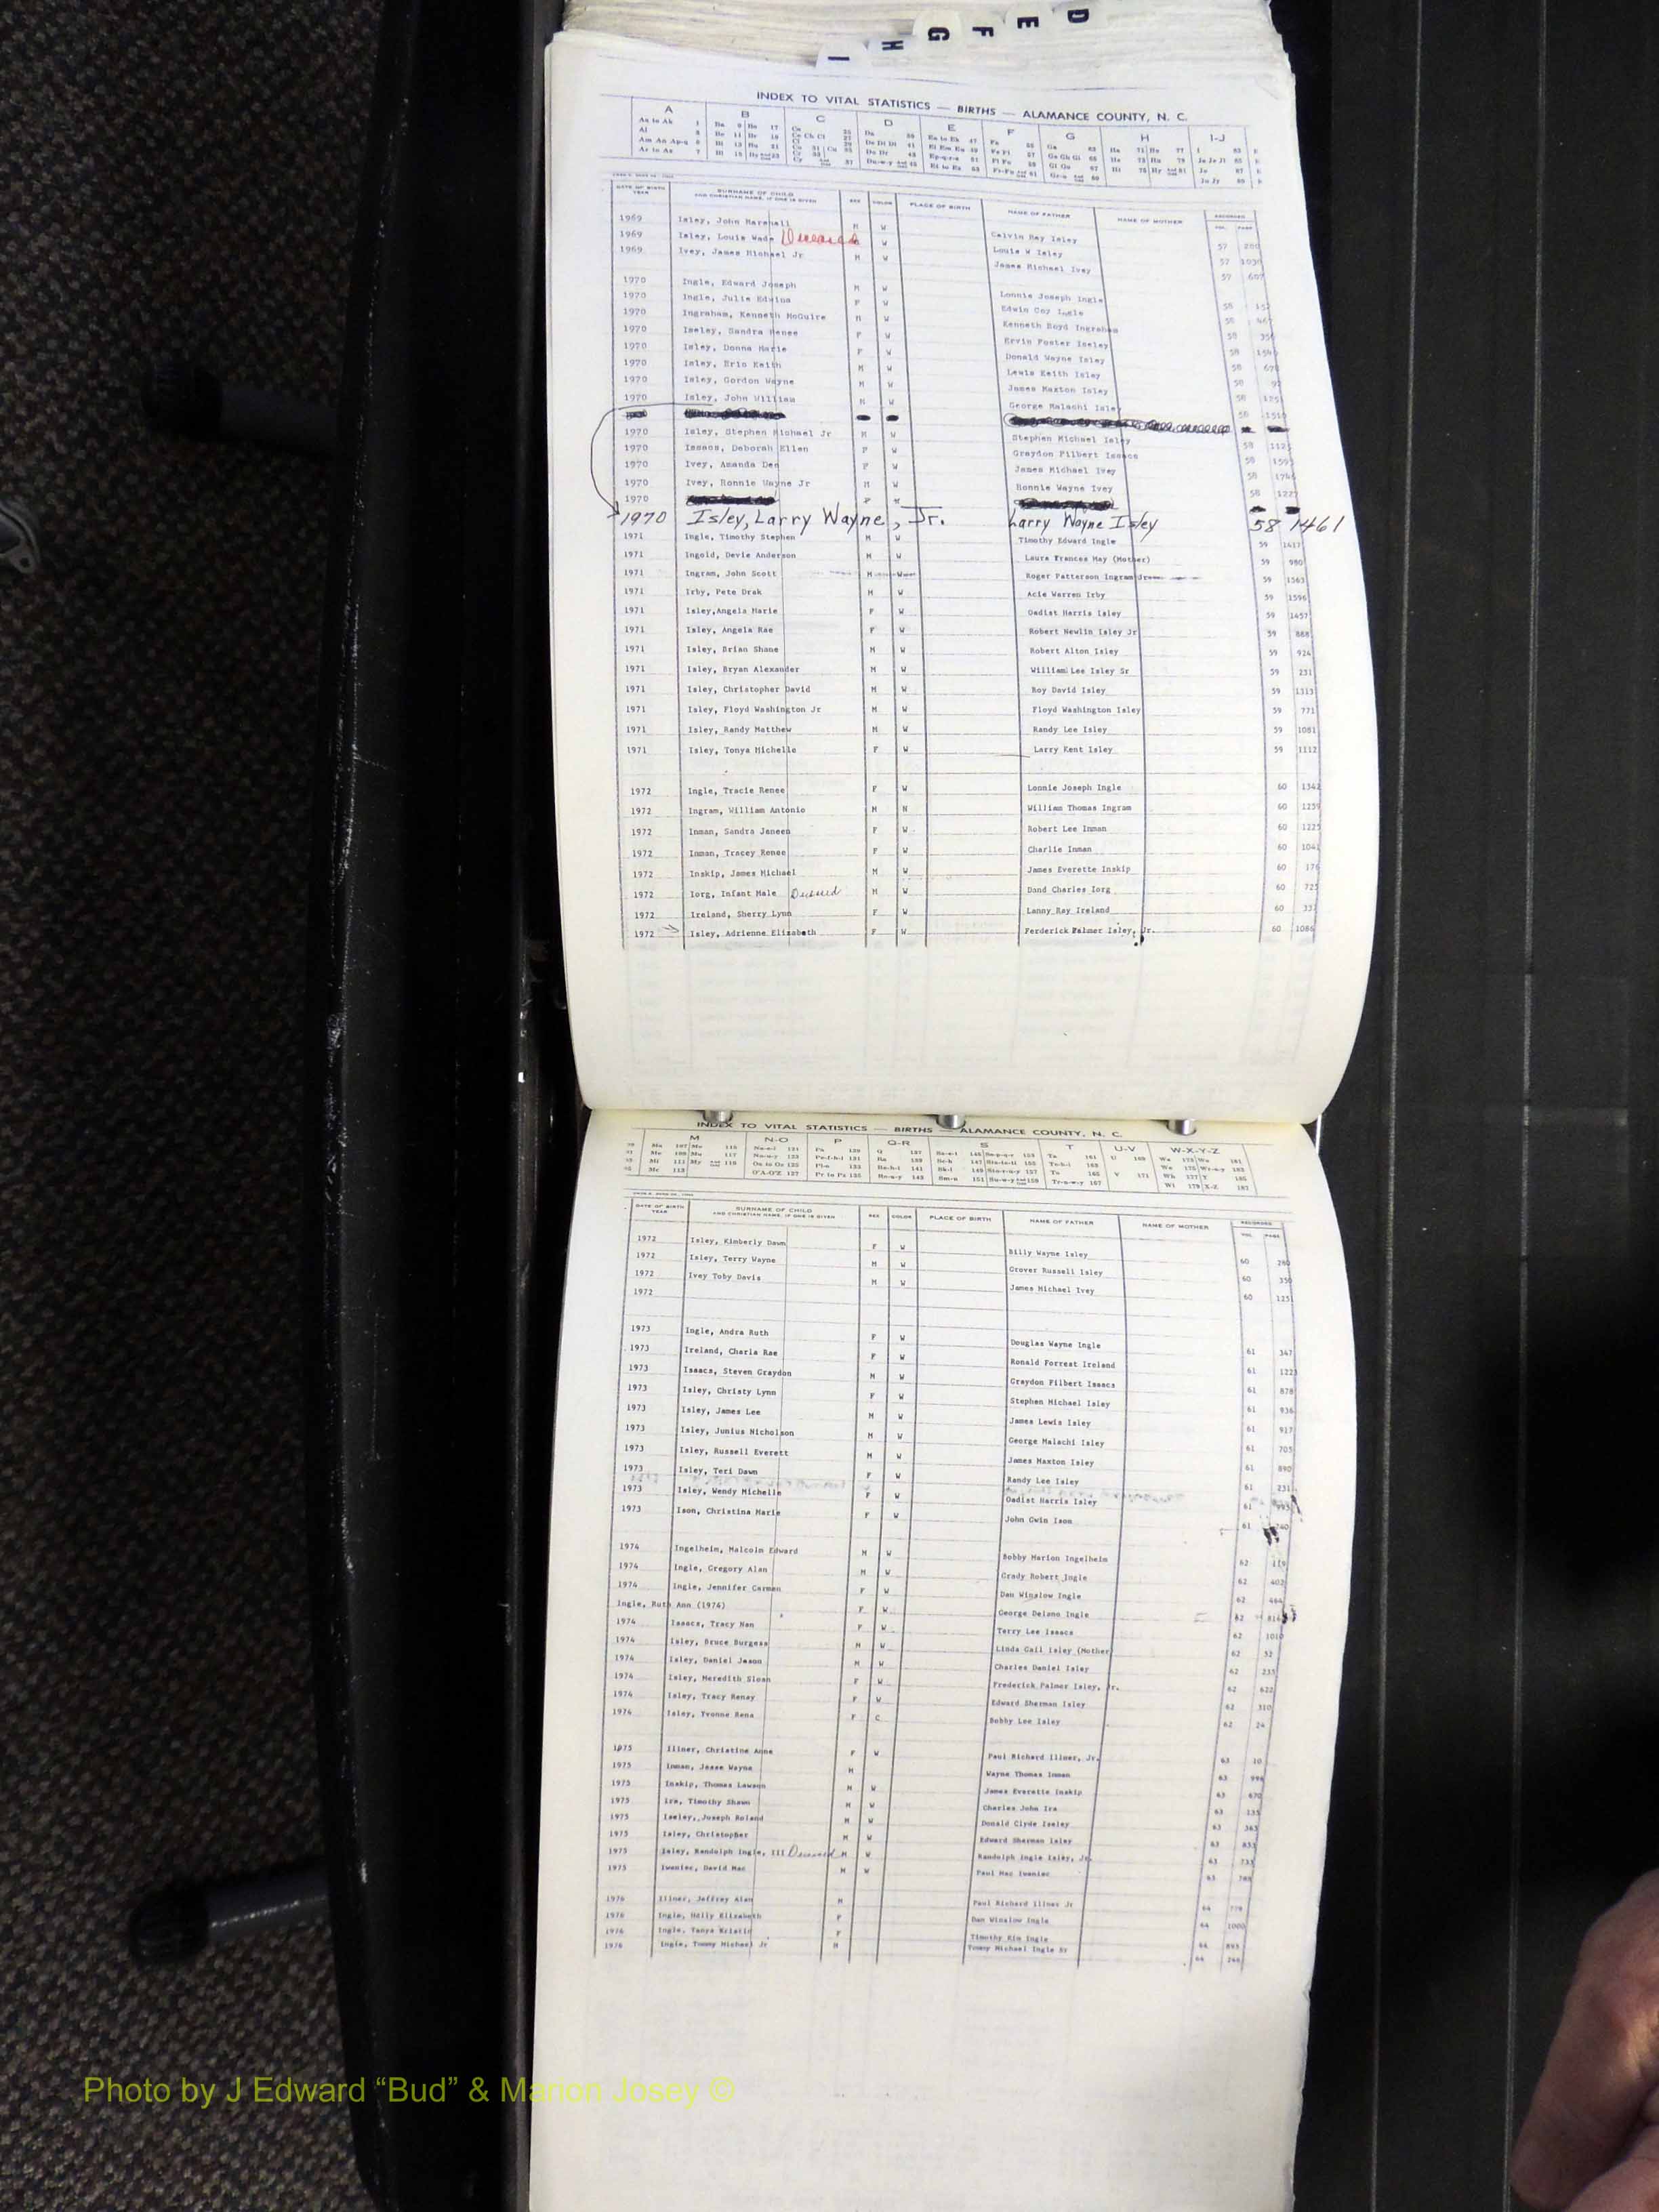 D
E
F
G
H
I
INDEX TO VITAL STATISTICS — BIRTHS — ALAMANCE COUNTY, N. C.
A B C D E F G H I-J
DATE OF BIRTH YEAR SURNAME OF CHILD AND CHRISTIAN NAME, IF ONE IS GIVEN SEX COLOR PLACE OF BIRTH NAME OF FATHER NAME OF MOTHER RECORDED VOL. PAGE
1969 Isley, John Marshall M W Calvin Ray Isley 57 280
1969 Isley, Louis Wade Deceased W Louis W Isley 57 1030
1969 Ivey, James Michael Jr M W James Michael Ivey 57 607
1970 Ingle, Edward Joseph M W Lonnie Joseph Ingle 58
1970 Ingle, Julie Edwina F W Edwin Coy Ingle 58
1970 Ingraham, Kenneth McGuire M W Kenneth Boyd Ingraham 58
1970 Iseley, Sandra Renee F W Ervin Foster Iseley 58
1970 Isley, Donna Marie F W Donald Wayne Isley 58
1970 Isley, Eric Keith M W Lewis Keith Isley 58
1970 Isley, Gordon Wayne M W James Maxton Isley 58
1970 Isley, John William M W George Malachi Isley 58
1970 Isley, Stephen Michael Jr M W Stephen Michael Isley 58
1970 Isaacs, Deborah Ellen F W Graydon Filbert Isaacs 58
1970 Ivey, Amanda Dee F W James Michael Ivey 58
1970 Ivey, Ronnie Wayne Jr M W Ronnie Wayne Ivey 58
1970 F W
1970 Isley, Larry Wayne, Jr. Larry Wayne Isley 58 1461
1971 Ingle, Timothy Stephen M W Timothy Edward Ingle 59 1417
1971 Ingold, Devie Anderson M W Laura Frances May (Mother) 59 980
1971 Ingram, John Scott M W Roger Patterson Ingram Jr 59 1563
1971 Irby, Pete Drak M W Acie Warren Irby 59 1596
1971 Isley,Angela Marie F W Oadist Harris Isley 59 1457
1971 Isley, Angela Rae F W Robert Newlin Isley Jr 59 888
1971 Isley, Brian Shane M W Robert Alton Isley 59 924
1971 Isley, Bryan Alexander M W William Lee Isley Sr 59 231
1971 Isley, Christopher David M W Roy David Isley 59 1313
1971 Isley, Floyd Washington Jr M W Floyd Washington Isley 59 771
1971 Isley, Randy Matthew M W Randy Lee Isley 59 1081
1971 Isley, Tonya Michelle F W Larry Kent Isley 59 1112
1972 Ingle, Tracie Renee F W Lonnie Joseph Ingle 60 1342
1972 Ingram, William Antonio M N William Thomas Ingram 60 1259
1972 Inman, Sandra Janeen F W Robert Lee Inman 60 1225
1972 Inman, Tracey Renee F W Charlie Inman 60 1041
1972 Inskip, James Michael M W James Everette Inskip 60 176
1972 Iorg, Infant Male Deceased M W Dand Charles Iorg 60 725
1972 Ireland, Sherry Lynn F W Lanny Ray Ireland 60 337
1972 Isley, Adrienne Elizabeth F W Ferderick Palmer Isley, Jr. 60 1086
INDEX TO VITAL STATISTICS — BIRTHS — ALAMANCE COUNTY, N. C.
M N-O P Q-R S T U-V W-X-Y-Z
DATE OF BIRTH YEAR SURNAME OF CHILD AND CHRISTIAN NAME, IF ONE IS GIVEN SEX COLOR PLACE OF BIRTH NAME OF FATHER NAME OF MOTHER RECORDED VOL. PAGE
1972 Isley, Kimberly Dawn F W Billy Wayne Isley 60 280
1972 Isley, Terry Wayne M W Grover Russell Isley 60 350
1972 Ivey Toby Davis M W James Michael Ivey 60 1251
1972
1973 Ingle, Andra Ruth F W Douglas Wayne Ingle 61 347
1973 Ireland, Charla Rae F W Ronald Forrest Ireland 61 1223
1973 Isaacs, Steven Graydon M W Graydon Filbert Isaacs 61 878
1973 Isley, Christy Lynn F W Stephen Michael Isley 61 936
1973 Isley, James Lee M W James Lewis Isley 61 917
1973 Isley, Junius Nicholson M W George Malachi Isley 61 705
1973 Isley, Russell Everett M W James Maxton Isley 61 890
1973 Isley, Teri Dawn F W Randy Lee Isley 61 231
1973 Isley, Wendy Michelle F W Oadist Harris Isley 61 993
1973 Ison, Christina Marie F W John Gwin Ison 61
1974 Ingelheim, Malcolm Edward M W Bobby Marion Ingelheim 62 119
1974 Ingle, Gregory Alan M W Grady Robert Ingle 62 402
1974 Ingle, Jennifer Carmen F W Dan Winslow Ingle 62 464
Ingle, Ruth Ann (1974) F W George Delano Ingle 62 814
1974 Isaacs, Tracy Nan F W Terry Lee Isaacs 62 1010
1974 Isley, Bruce Burgess M W Linda Gail Isley (Mother) 62 52
1974 Isley, Daniel Jason M W Charles Daniel Isley 62 255
1974 Isley, Meredith Sloan F W Frederick Palmer Isley, Jr. 62 622
1974 Isley, Tracy Renay F W Edward Sherman Isley 62 310
1974 Isley, Yvonne Rena F C Bobby Lee Isley 62 24
1975 Illner, Christine Anne F W Paul Richard Illner, Jr. 63 10
1975 Inman, Jesse Wayne M Wayne Thomas Inman 63 996
1975 Inskip, Thomas Lawson M W James Everette Inskip 63 670
1975 Ira, Timothy Shawn M W Charles John Ira 63 135
1975 Iseley, Joseph Roland M W Donald Clyde Iseley 63 363
1975 Isley, Christopher M W Edward Sherman Isley 63 853
1975 Isley, Randolph Ingle, III Deceased M W Randolph Ingle Isley, Jr. 63 733
1975 Iwaniec, David Mac M W Paul Mac Iwaniec 63 788
1976 Illner, Jeffrey Alan M Paul Richard Illner Jr 64 778
1976 Ingle, Holly Elizabeth F Dan Winslow Ingle 64 1000
1976 Ingle, Tanya Kristin F Timothy Kim Ingle 64 893
1976 Ingle, Tommy Michael Jr M Tommy Michael Ingle Sr 64 746
Photo by J Edward “Bud” & Marion Josey ©